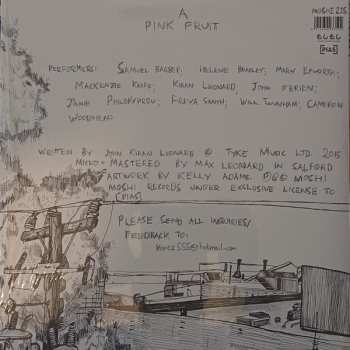 A
PINK FRUIT
MOSHI 235
[PIAS]
PERFORMERS: SAMUEL BARBER, HELENE BRADLEY, MARY EPWORTH,
MACKENZIE KEEFE, KIRAN LEONARD, JOHN O'BRIEN,
JAMIE PHILOKYPROU, FREYA SMITH, WILL TWYNHAM, CAMERON
WOODHEAD
WRITTEN BY KIRAN LEONARD © TYKE MUSIC LTD. 2015
MIXED + MASTERED BY MAX LEONARD IN SALFORD
ARTWORK BY KELLY ADAME. MOSHI
MOSHI RECORDS UNDER EXCLUSIVE LICENSE TO
[PIAS]
PLEASE SEND ALL INQUIRIES/
FEEDBACK TO: